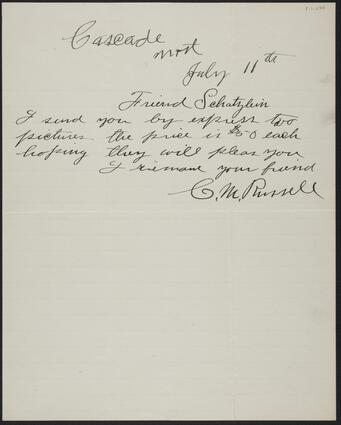 Cascade
Mont
July 11th
Friend Schatzlein
I send you by express two
pictures the price is $50 each
hoping they will pleas you
I remane your friend
C. M. Russell